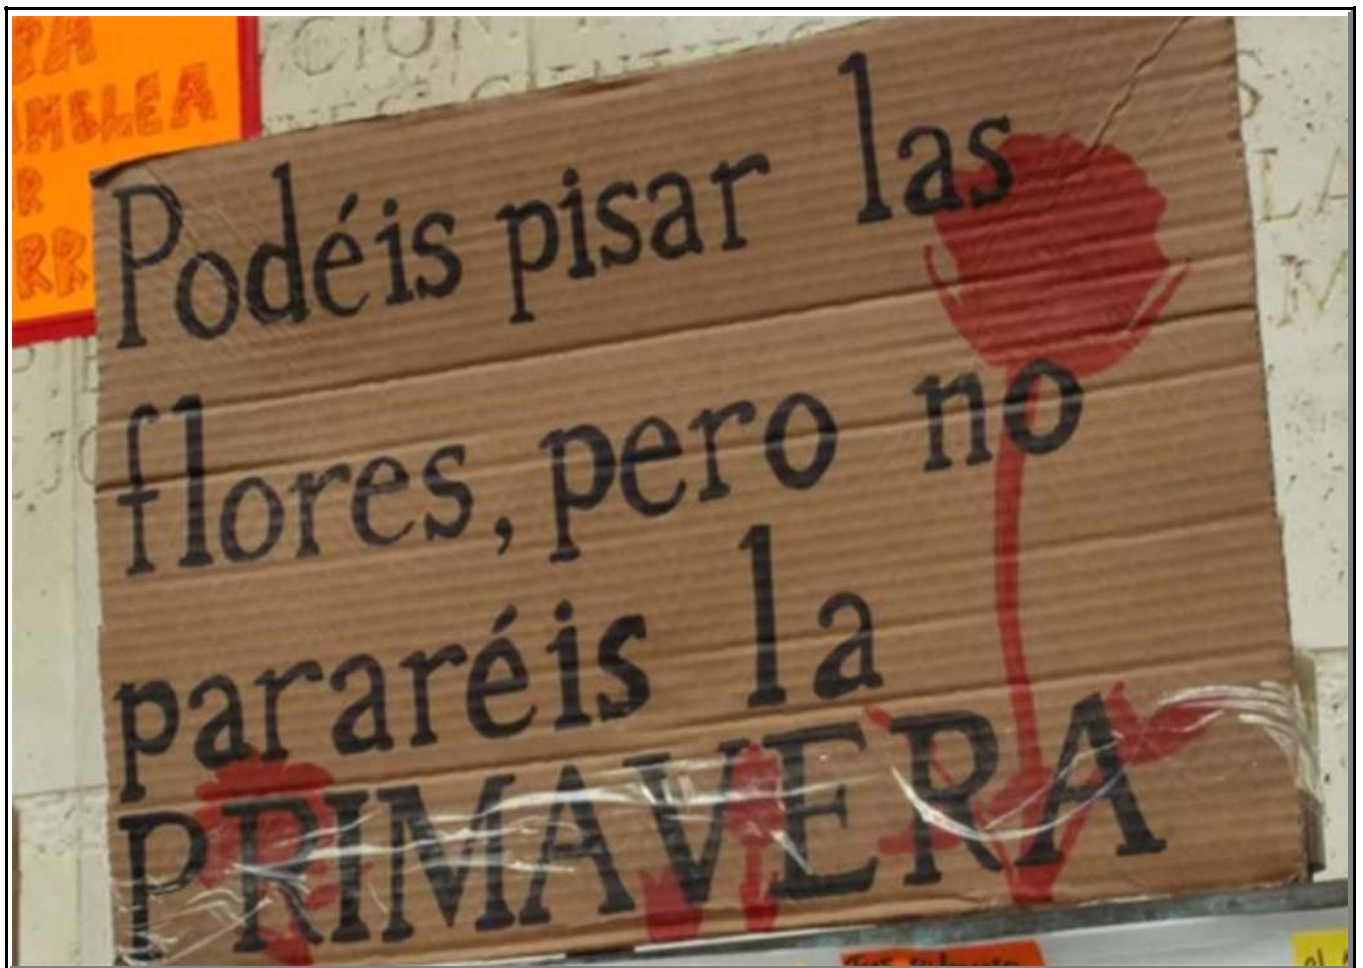 Podéis pisar las
flores, pero no
pararéis la
PRIMAVERA